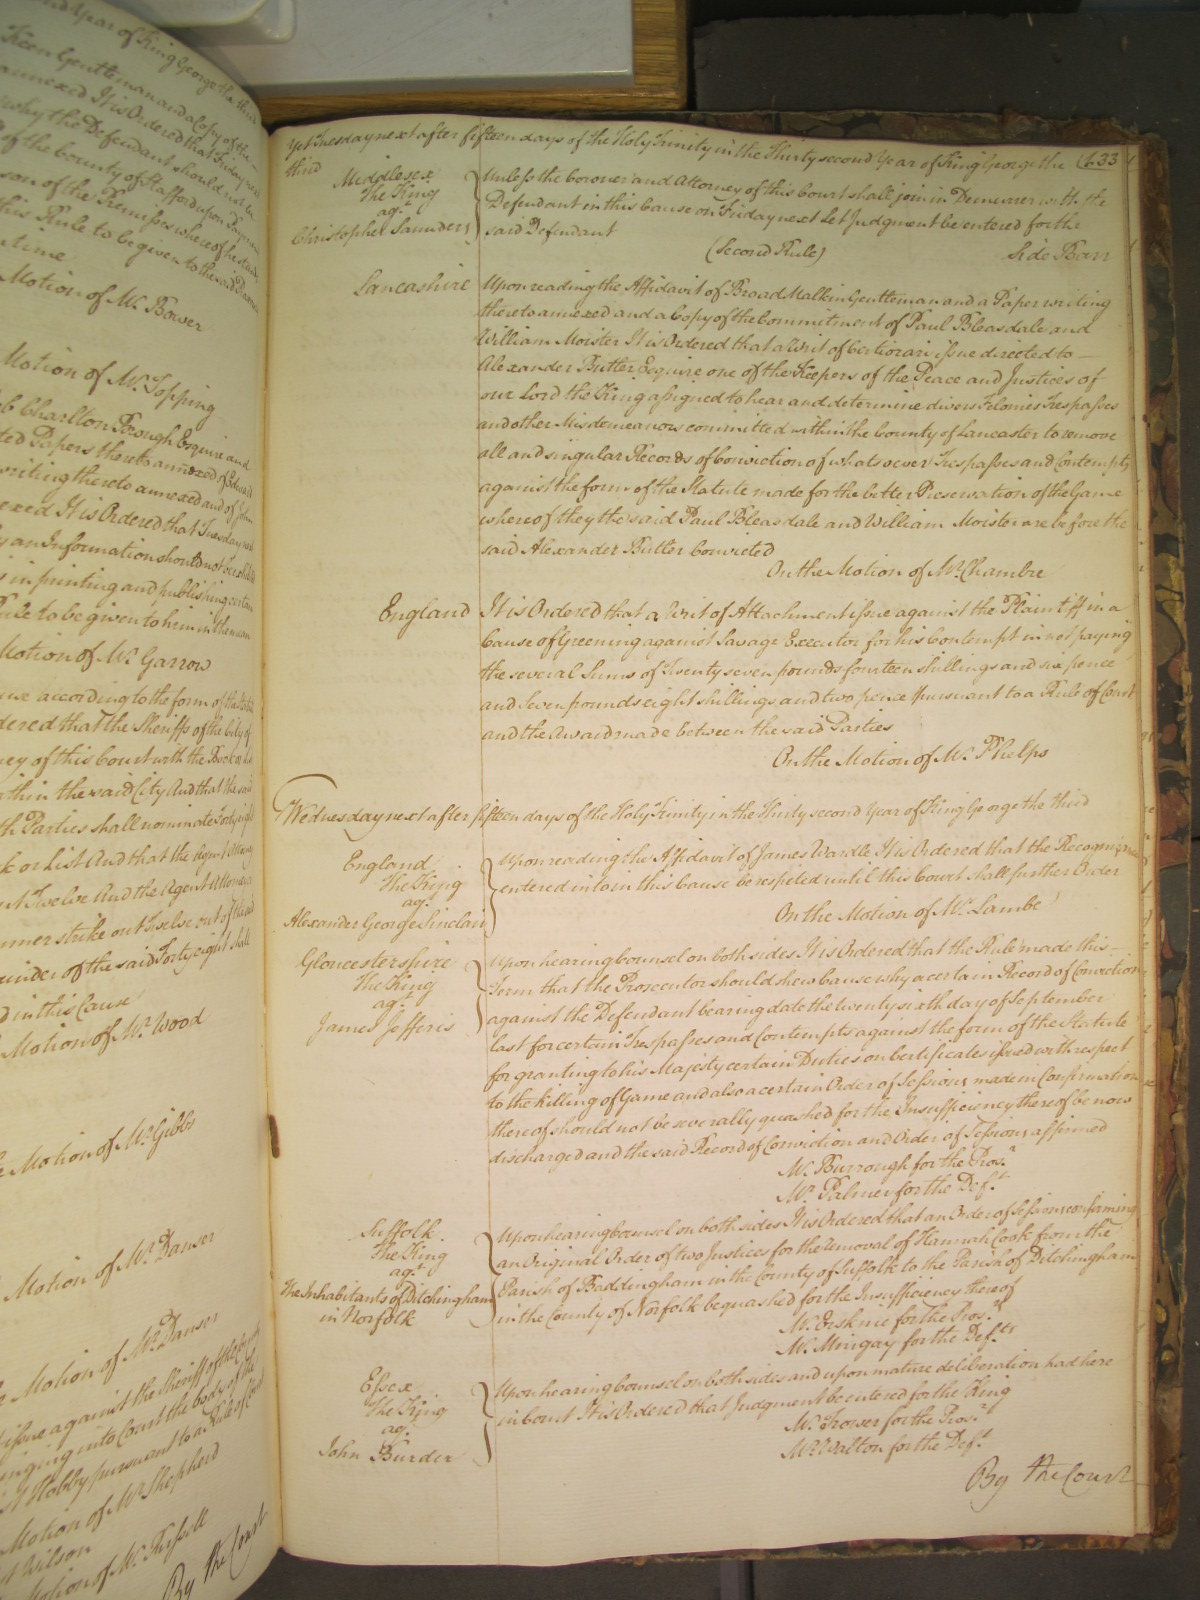 nd Year of King George the third
Keen Gentleman and a Copy of the
annexed It is Ordered that Friday next
why the Defendant should not be
of the County of Stafford upon
son of the Premisses whereof he stands
this Rule to be given to the said
ntime
Motion of Mr. Bower
Motion of Mr. Topping
Charlton Esquire and
ted Papers thereto annexed of Edward
writing thereto annexed and of John
exed It is Ordered that Tuesday next
y an Information should not be
s in printing and publishing certain
Rule to be given to him in the mean
Motion of Mr. Garrow
according to the form of the Statute
dered that the Sheriffs of the City of
ney of this Court with the Book or
thin the said City And that the said
th Parties shall nominate Forty eight
k or List And that the Agent Attorney
ut Twelve And the Agent Attorney
nner strike out Twelve out of the said
ainder of the said Forty eight shall
d in this Cause
Motion of Mr. Wood
Motion of Mr. Gibbs
Motion of Mr. Dauser
Motion of Mr. Dauser
issue against the Sheriff of the County
inging into Court the body of the
Hobby pursuant to a Rule of Court
Motion of Mr. Shepherd
t Wilson
Motion of Mr. Russell
By the Court
Yet Tuesday next after fifteen days of the Holy Trinity in the Thirty second Year of King George the (433
third
Middlesex
The King
agt.
Christopher Saunders
Unless the Coroner and Attorney of this Court shall join in Demurrer with the
Defendant in this Cause on Friday next Let Judgment be entered for the
said Defendant
(Second Rule) Side Barr
Lancashire Upon reading the Affidavit of Broad Malkin Gentleman and a Paper writing
thereto annexed and a Copy of the Commitment of Paul Bleasdale and
William Moister It is Ordered that a Writ of Certiorari issue directed to
Alexander Butler Esquire one of the Keepers of the Peace and Justices of
our Lord the King assigned to hear and determine divers Felonies Trespasses
and other Misdemeanors committed within the County of Lancaster to remove
all and singular Records of Conviction of whatsoever Trespasses and Contempts
against the form of the Statute made for the better Preservation of the Game
whereof they the said Paul Bleasdale and William Moister are before the
said Alexander Butler Convicted
On the Motion of Mr. Chambre
England It is Ordered that a Writ of Attachment issue against the Plaintiff in a
Cause of Greening against Savage Executor for his Contempt in not paying
the several Sums of Twenty seven pounds fourteen shillings and six pence
and Seven pounds eight shillings and two pence pursuant to a Rule of Court
and the Award made between the said Parties
On the Motion of Mr. Phelps
Wednesday next after fifteen days of the Holy Trinity in the Thirty second Year of King George the third
England
The King
agt.
Alexander George Sinclair
Upon reading the Affidavit of James Wardle It is Ordered that the Recognizance
entered into in this Cause be respited until this Court shall further Order
On the Motion of Mr. Lambe
Gloucestershire
The King
agt.
James Jefferis
Upon hearing Counsel on both sides It is Ordered that the Rule made this
Term that the Prosecutor should shew Cause why a certain Record of Conviction
against the Defendant bearing date the twenty sixth day of September
last for certain Trespasses and Contempts against the form of the Statute
for granting to his Majesty certain Duties on Certificates issued with respect
to the killing of Game and also a certain Order of Sessions made in Confirmation
thereof should not be severally quashed for the Insufficiency thereof be now
discharged and the said Record of Conviction and Order of Sessions affirmed
Mr. Burrough for the Prosr.
Mr. Palmer for the Deft.
Suffolk
The King
agt.
The Inhabitants of Ditchingham
in Norfolk
Upon hearing Counsel on both sides It is Ordered that an Order of Sessions confirming
an Original Order of two Justices for the removal of Hannah Cook from the
Parish of Baddingham in the County of Suffolk to the Parish of Ditchingham
in the County of Norfolk be quashed for the Insufficiency thereof
Mr. Erskine for the Prosr.
Mr. Mingay for the Defts.
Essex
The King
agt.
John Burder
Upon hearing Counsel on both sides and upon mature deliberation had here
in Court It is Ordered that Judgment be entered for the King
Mr. Trower for the Prosr.
Mr. Walton for the Deft.
By the Court